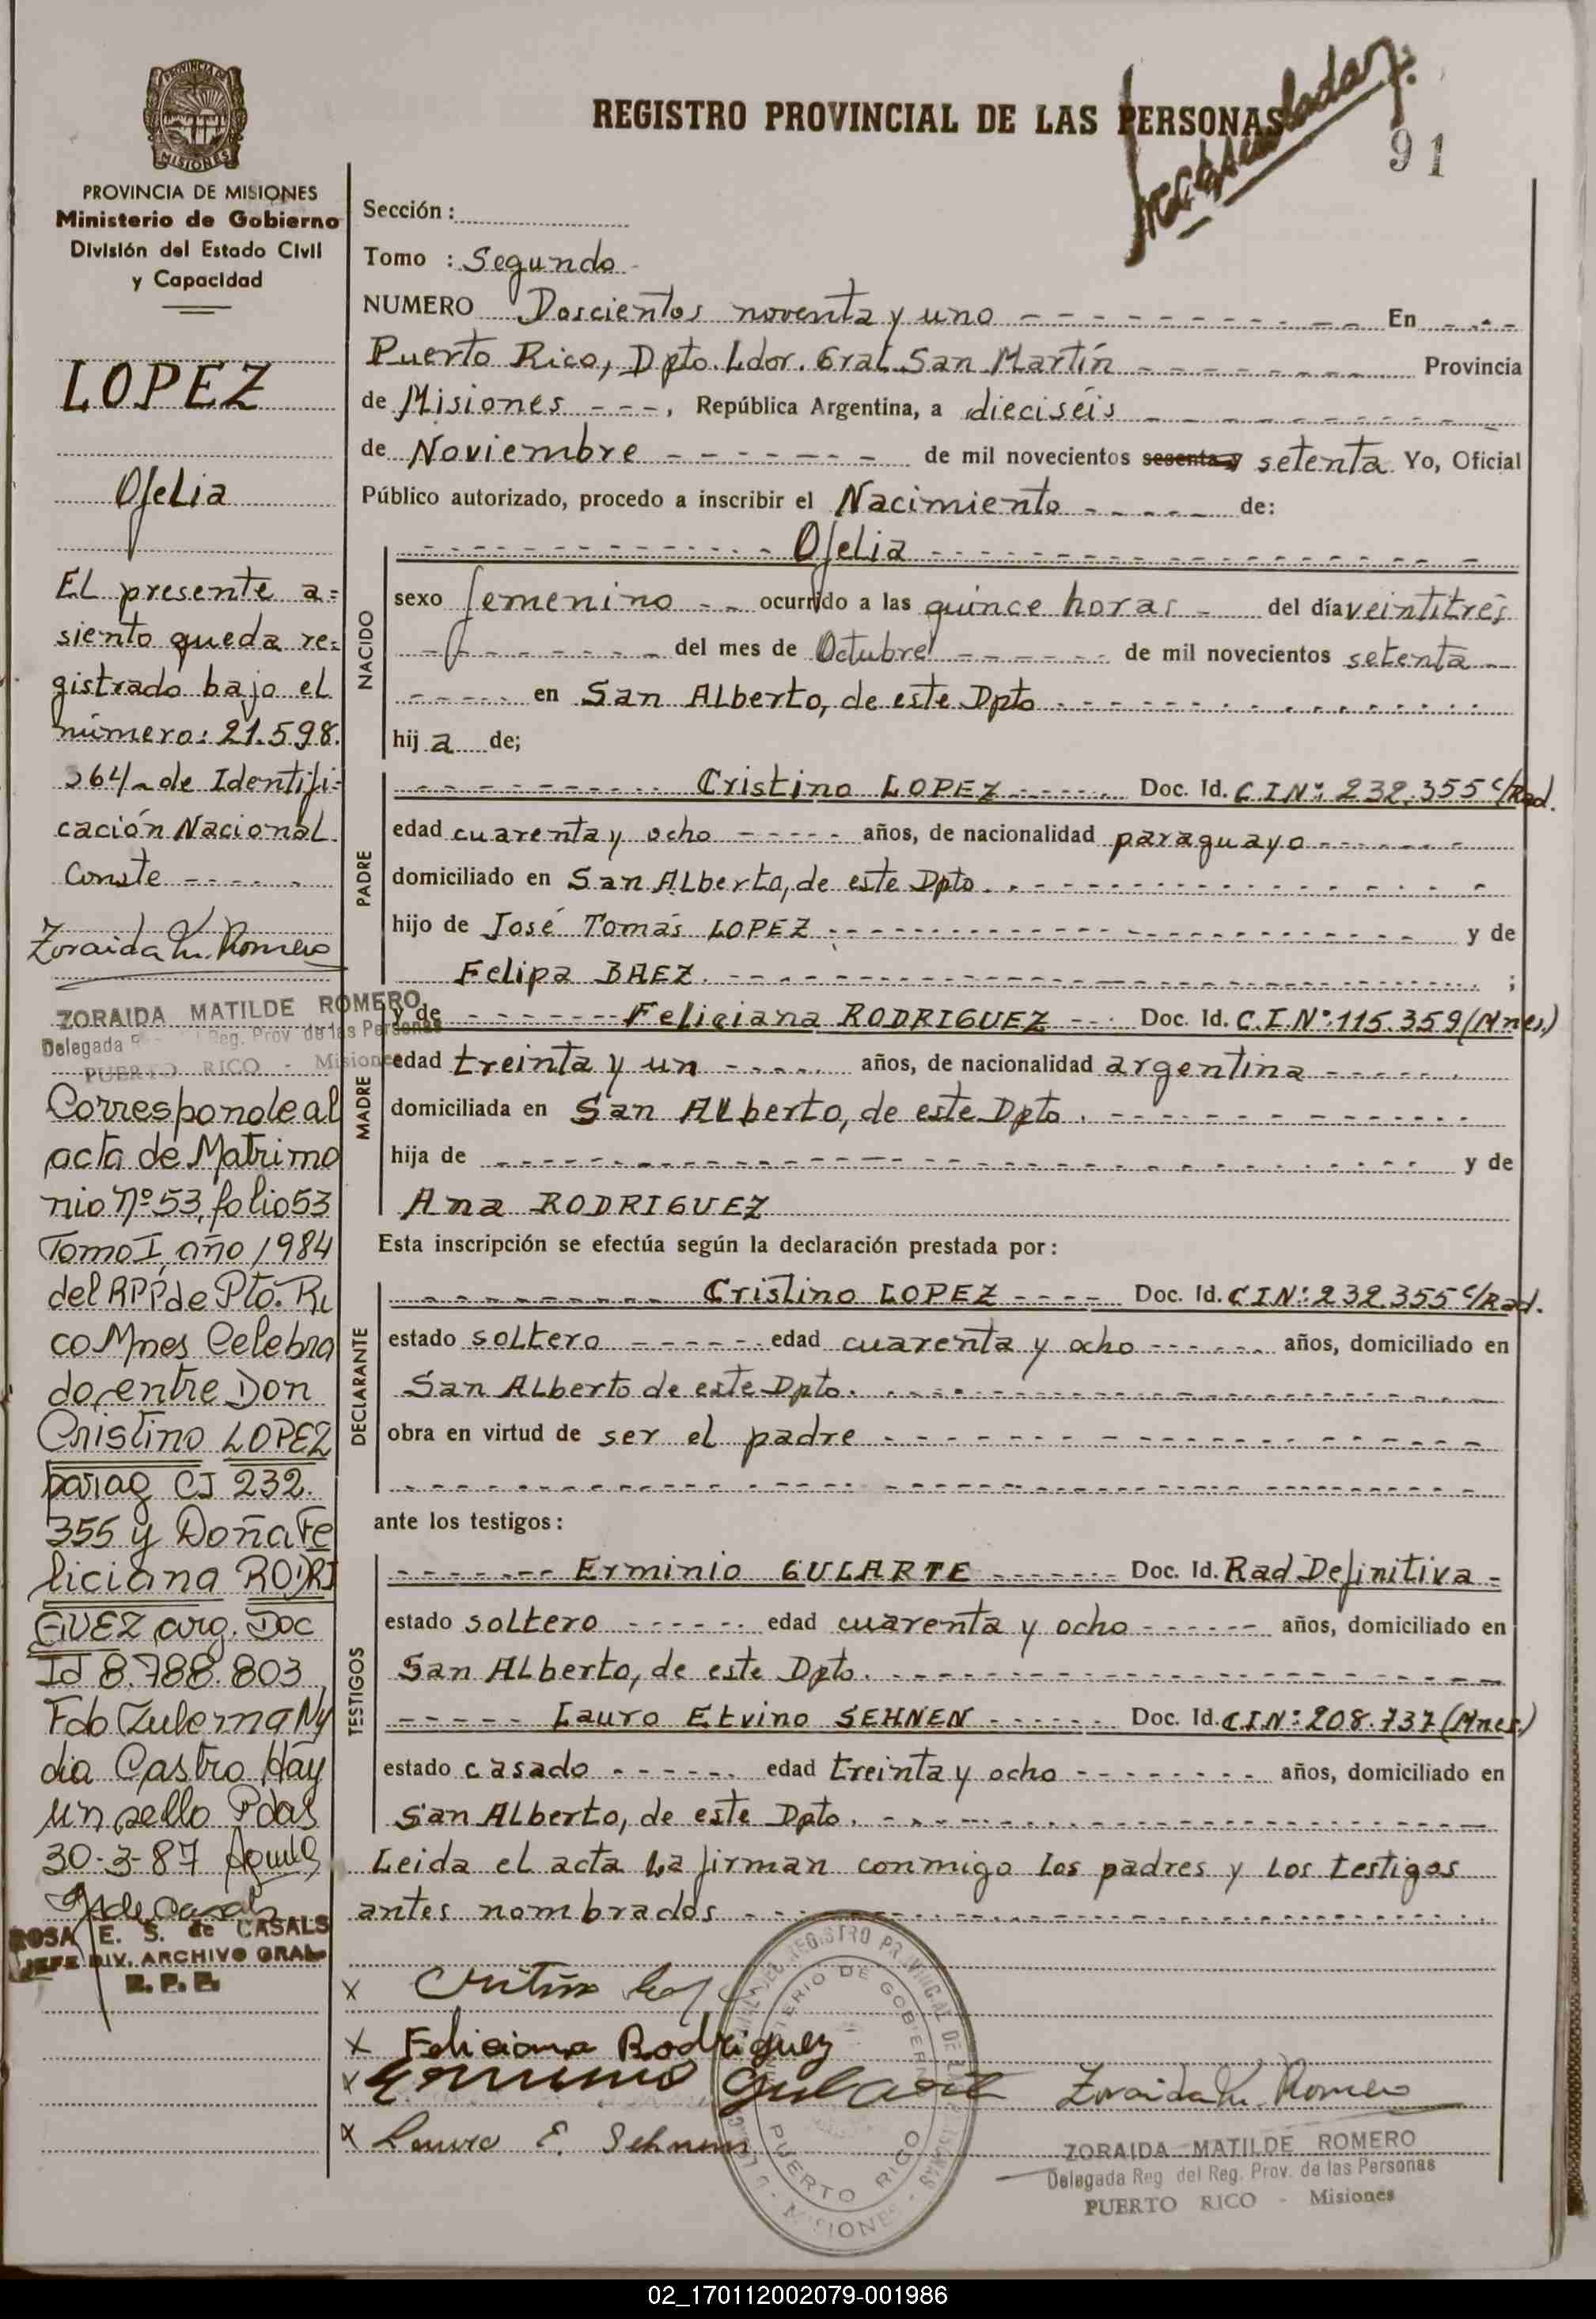 REGISTRO PROVINCIAL DE LAS PERSONAS
91
PROVINCIA DE MISIONES
PROVINCIA DE MISIONES
Ministerio de Gobierno
División del Estado Civil
y Capacidad
LOPEZ
Ofelia
El presente a=
siento queda re=
gistrado bajo el
número: 21.598.
364/- de Identifi=
cación Nacional.
Conste - - - - -
Zoraida M. Romero
ZORAIDA MATILDE ROMERO
Delegada Reg. Prov. de las Personas
PUERTO RICO - Misiones
Corresponde al
acta de Matrimo
nio Nº 53, folio 53
Tomo I, año 1984
del RPP de Pto. Ri
co Mnes Celebra
do, entre Don
Cristino LOPEZ
parag CI 232.
355 y Doña Fe
liciana RODRI
GUEZ arg. Doc
Id 8.788.803
Fdo Zulema Ny
dia Castro Hay
un sello Pdas
30-3-87
ROSA E. S. de CASALS
JEFE DIV. ARCHIVO GRAL
R. P. P.
Sección :
Tomo : Segundo -
NUMERO Doscientos noventa y uno - - - En - - -
Puerto Rico, Dpto. Ldor. Gral. San Martín - - - Provincia
de Misiones - - -, República Argentina, a dieciséis - - -
de Noviembre - - - de mil novecientos sesenta y setenta Yo, Oficial
Público autorizado, procedo a inscribir el Nacimiento - - - de:
- - - Ofelia - - -
NACIDO
sexo femenino - - ocurrido a las quince horas - del día veintitrés
- - - del mes de Octubre - - - de mil novecientos setenta - -
- - - en San Alberto, de este Dpto - - -
hij a de;
PADRE
- - - Cristino LOPEZ - - - Doc. Id. C I Nº: 232.355 c/Rad.
edad cuarenta y ocho - - - años, de nacionalidad paraguayo - - -
domiciliado en San Alberto, de este Dpto. - - -
hijo de José Tomás LOPEZ - - - y de
Felipa BAEZ. - - - ;
MADRE
y de - - - Feliciana RODRIGUEZ - - - Doc. Id. C.I.Nº:115.359(Mnes.)
edad treinta y un - - - años, de nacionalidad argentina - - -
domiciliada en San Alberto, de este Dpto. - - -
hija de - - - y de
Ana RODRIGUEZ
Esta inscripción se efectúa según la declaración prestada por:
DECLARANTE
- - - Cristino LOPEZ - - - Doc. Id. C I Nº: 232.355 c/Rad.
estado soltero - - - edad cuarenta y ocho - - - años, domiciliado en
San Alberto de este Dpto. - - -
obra en virtud de ser el padre - - -
ante los testigos:
TESTIGOS
- - - Erminio GULARTE - - - Doc. Id. Rad Definitiva -
estado soltero - - - edad cuarenta y ocho - - - años, domiciliado en
San Alberto, de este Dpto. - - -
- - - Lauro Etvino SEHNEN - - - Doc. Id. C I Nº: 208.737 (Mnes.)
estado casado - - - edad treinta y ocho - - - años, domiciliado en
San Alberto, de este Dpto. - - -
Leida el acta la firman conmigo los padres y los testigos
antes nombrados - - -
x
x Feliciana Rodriguez
x Erminio Gularte
x Lauro E. Sehnen
Zoraida M. Romero
ZORAIDA MATILDE ROMERO
Delegada Reg. del Reg. Prov. de las Personas
PUERTO RICO - Misiones
MINISTERIO DE GOBIERNO
PUERTO RICO
MISIONES
02_170112002079-001986